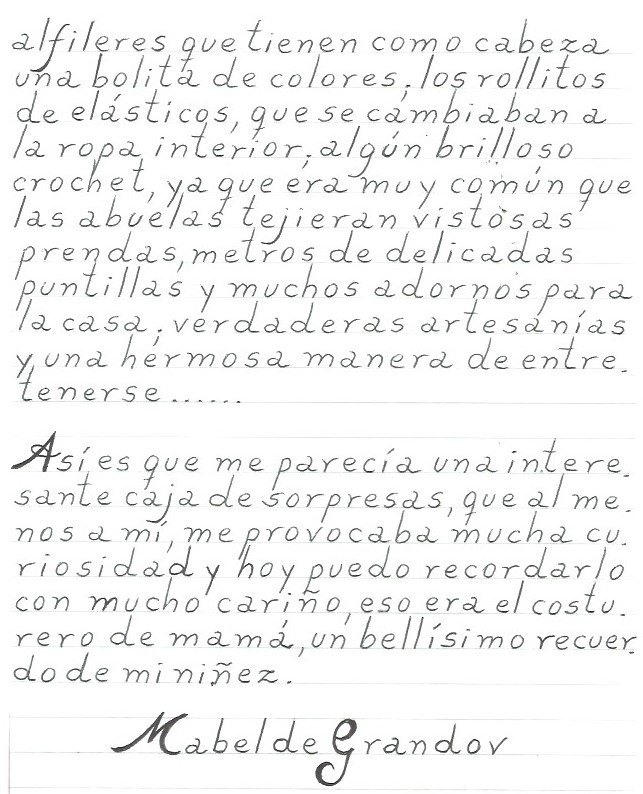 alfileres que tienen como cabeza
una bolita de colores; los rollitos
de elásticos, que se cambiaban a
la ropa interior; algún brilloso
crochet, ya que era muy común que
las abuelas tejieran vistosas
prendas, metros de delicadas
puntillas y muchos adornos para
la casa; verdaderas artesanías
y una hermosa manera de entre.
tenerse......
Así es que me parecía una intere.
sante caja de sorpresas, que al me.
nos a mí, me provocaba mucha cu.
riosidad y hoy puedo recordarlo
con mucho cariño, eso era el costu.
rero de mamá, un bellísimo recuer.
do de mi niñez.
Mabel de Grandov